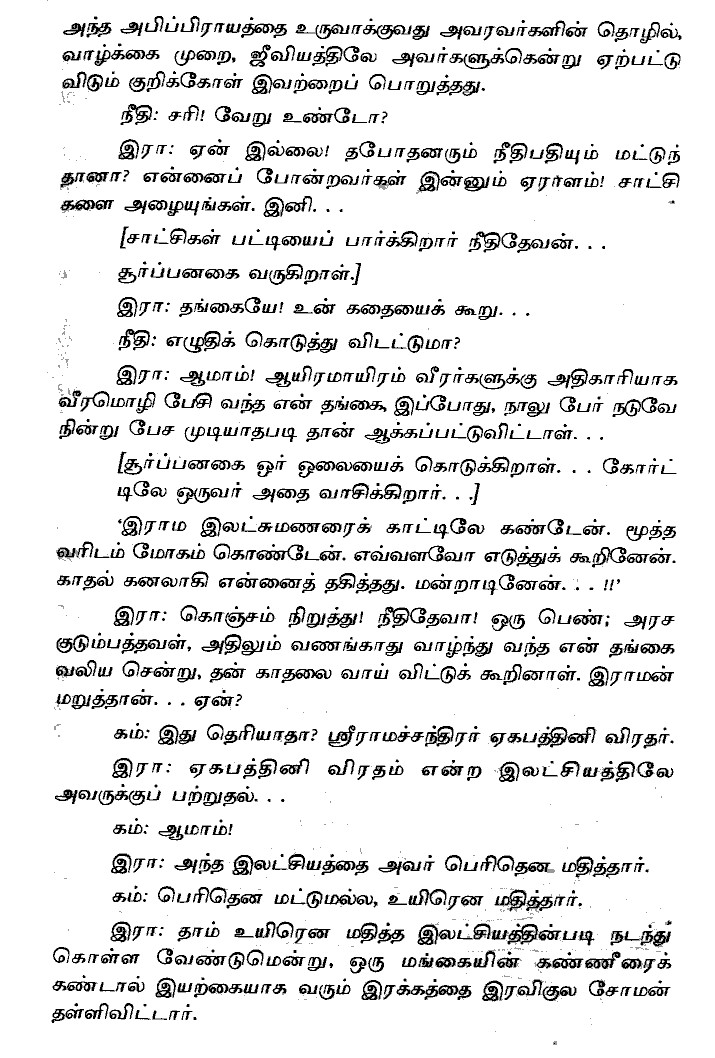 அந்த அபிப்பிராயத்தை உருவாக்குவது அவரவர்களின் தொழில்,
வாழ்க்கை முறை, ஜீவியத்திலே அவர்களுக்கென்று ஏற்பட்டு
விடும் குறிக்கோள் இவற்றைப் பொறுத்தது.
நீதி: சரி! வேறு உண்டோ?
இரா: ஏன் இல்லை! தபோதனரும் நீதிபதியும் மட்டுந்
தானா? என்னைப் போன்றவர்கள் இன்னும் ஏராளம்! சாட்சி
களை அழையுங்கள். இனி. . .
[சாட்சிகள் பட்டியைப் பார்க்கிறார் நீதிதேவன். . .
சூர்ப்பனகை வருகிறாள்.]
இரா: தங்கையே! உன் கதையைக் கூறு. . .
நீதி: எழுதிக் கொடுத்து விடட்டுமா?
இரா: ஆமாம்! ஆயிரமாயிரம் வீரர்களுக்கு அதிகாரியாக
வீரமொழி பேசி வந்த என் தங்கை, இப்போது, நாலு பேர் நடுவே
நின்று பேச முடியாதபடி தான் ஆக்கப்பட்டுவிட்டாள். . .
[சூர்ப்பனகை ஓர் ஓலையைக் கொடுக்கிறாள். . . கோர்ட்
டிலே ஒருவர் அதை வாசிக்கிறார். . .]
‘இராம இலட்சுமணரைக் காட்டிலே கண்டேன். மூத்த
வரிடம் மோகம் கொண்டேன். எவ்வளவோ எடுத்துக் கூறினேன்.
காதல் கனலாகி என்னைத் தகித்தது. மன்றாடினேன். . . !!’
இரா: கொஞ்சம் நிறுத்து! நீதிதேவா! ஒரு பெண்; அரச
குடும்பத்தவள், அதிலும் வணங்காது வாழ்ந்து வந்த என் தங்கை
வலிய சென்று, தன் காதலை வாய் விட்டுக் கூறினாள். இராமன்
மறுத்தான். . . ஏன்?
கம்: இது தெரியாதா? ஸ்ரீராமச்சந்திரர் ஏகபத்தினி விரதர்.
இரா: ஏகபத்தினி விரதம் என்ற இலட்சியத்திலே
அவருக்குப் பற்றுதல். . .
கம்: ஆமாம்!
இரா: அந்த இலட்சியத்தை அவர் பெரிதென மதித்தார்.
கம்: பெரிதென மட்டுமல்ல, உயிரென மதித்தார்.
இரா: தாம் உயிரென மதித்த இலட்சியத்தின்படி நடந்து
கொள்ள வேண்டுமென்று, ஒரு மங்கையின் கண்ணீரைக்
கண்டால் இயற்கையாக வரும் இரக்கத்தை இரவிகுல சோமன்
தள்ளிவிட்டார்.